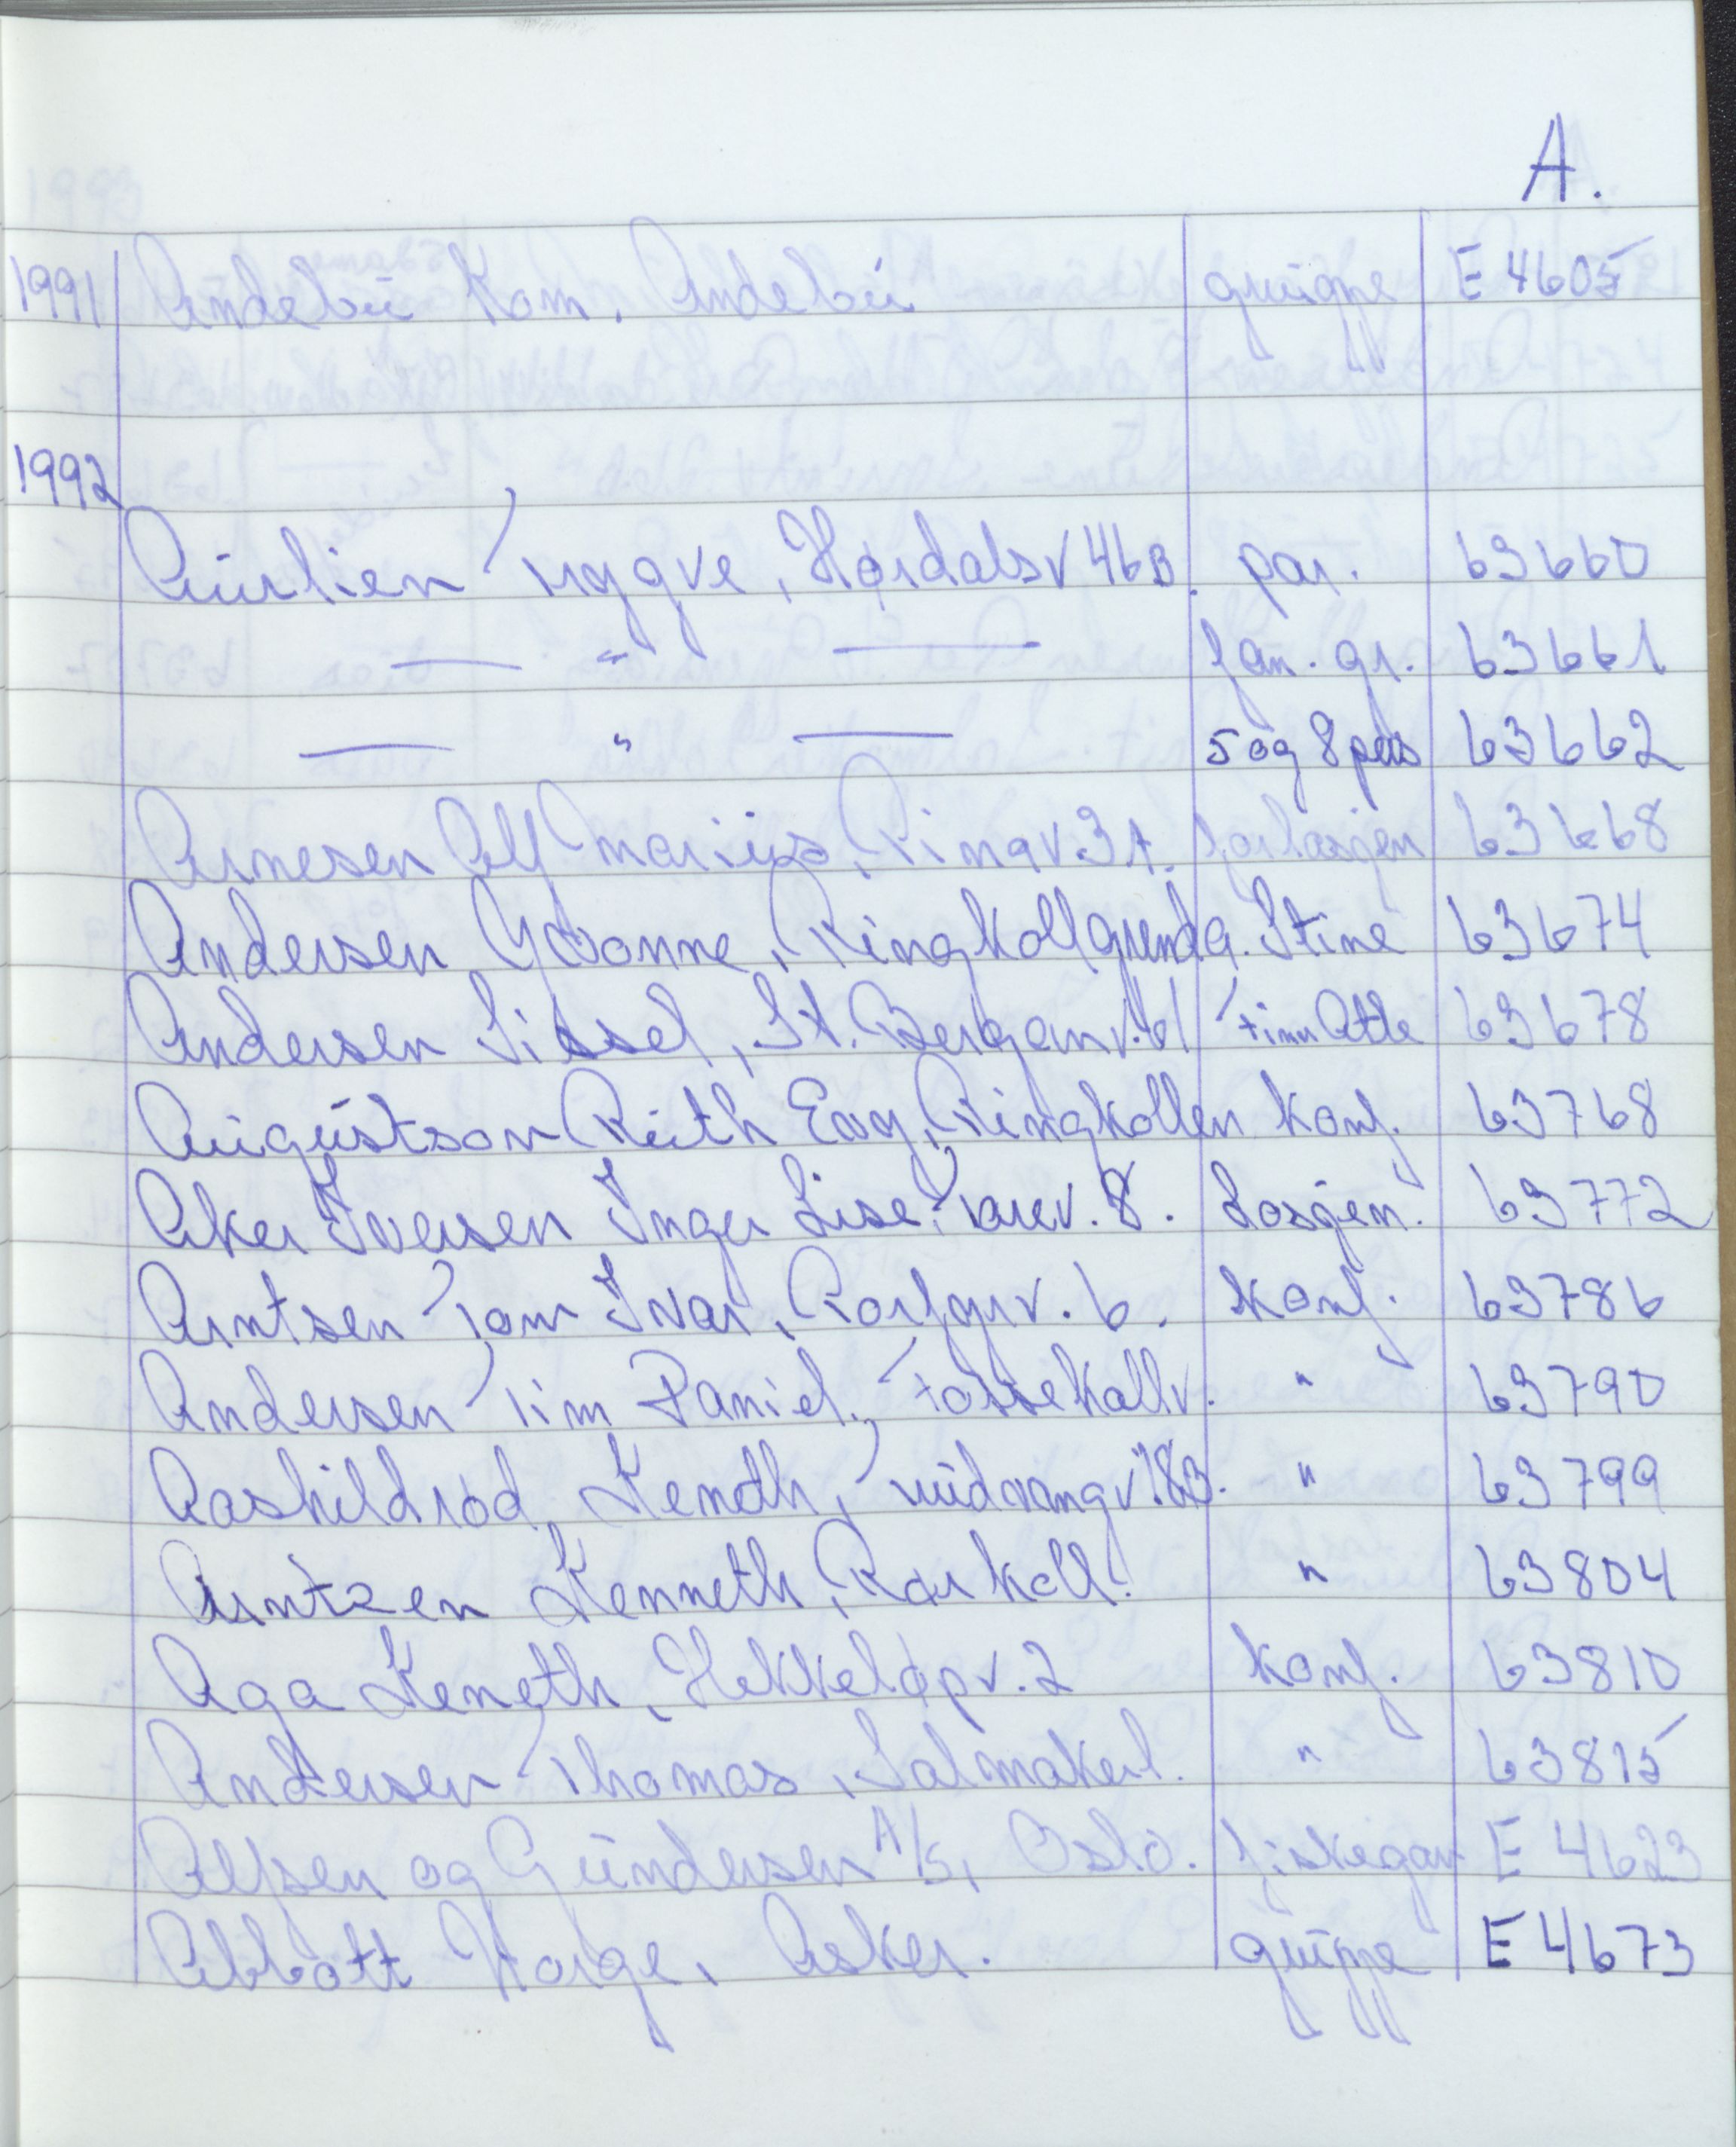 A.
1991 Andebu Kom. Andebu gruppe E 4605
1992
Aurlien Trygve, Hørdalsv 46B. par. 63660
— " — fam. gr. 63661
— " — 5 og 8 pers 63662
Arnesen Alf Marius, Ringv. 3A. 63668
Andersen Yvonne, Ringkollgrenda. Stine 63674
Andersen Sissel, St. Berganv. 61 Finn Atle 63678
Augustson Ruth Evy, Ringkollen Konf. 63768
Aker Iversen Inger Lise, Torev. 8. Løsgjen. 63772
Arntsen Tom Ivar, Rorfgrv. 6. Konf. 63786
Andersen Tim Daniel, Fossekallv. " 63790
Aashildrød, Keneth, Midvangv. 18B. " 63799
Arntzen Kenneth, Rørkoll. " 63804
Aga Keneth, Hekkeløpv. 2 Konf. 63810
Andersen Thomas, Salmakerl. " 63815
Alfsen og Gundersen A/S, Oslo. E 4623
Abbott Norge, Asker. gruppe E 4673